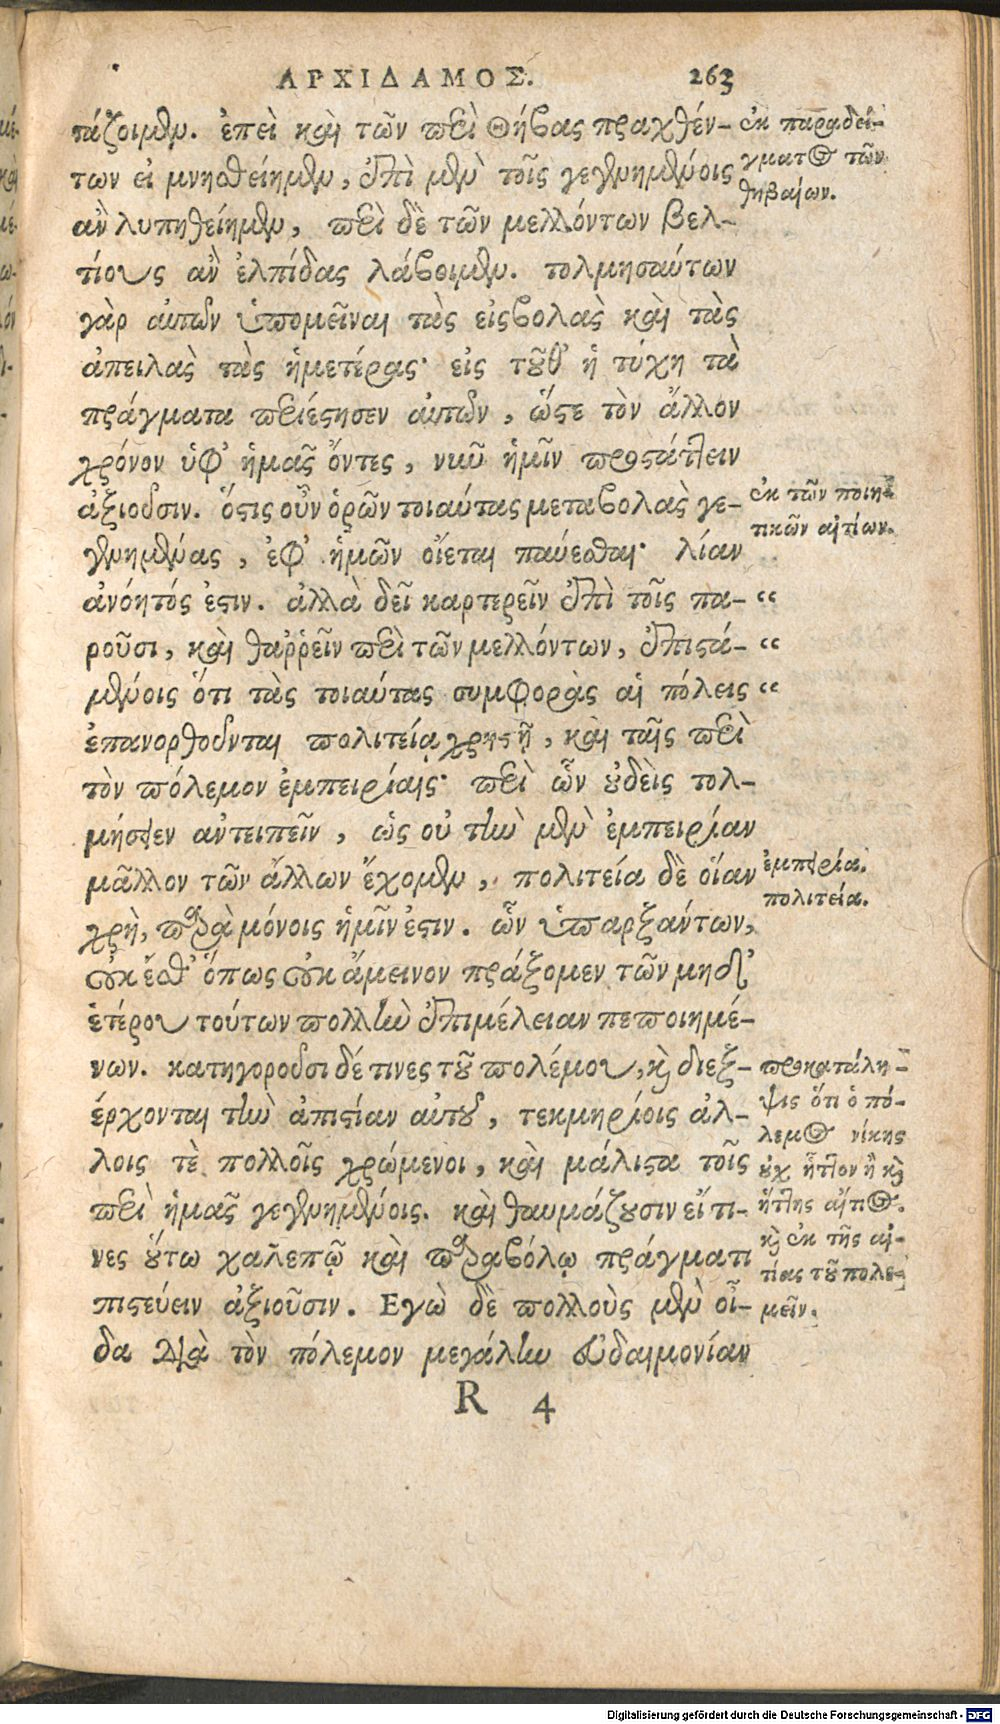 ΑΡΧΙΔΑΜΟΣ. 263
τάζοιμεν. ἐπεὶ καὶ τῶν περὶ Θήβας πραχθέν-
των εἰ μνησθείημεν, ἐπὶ μὲν τοῖς γεγενημένοις
ἂν λυπηθείημεν, περὶ δὲ τῶν μελλόντων βελ-
τίους ἂν ἐλπίδας λάβοιμεν. τολμησάντων
γὰρ αὐτῶν ὑπομεῖναι τὰς εἰσβολὰς καὶ τὰς
ἀπειλὰς τὰς ἡμετέρας· εἰς τοῦθ' ἡ τύχη τὰ
πράγματα περιέστησεν αὐτῶν, ὥστε τὸν ἄλλον
χρόνον ὑφ' ἡμᾶς ὄντες, νῦν ἡμῖν προστάττειν
ἀξιοῦσιν. ὅστις οὖν ὁρῶν τοιαύτας μεταβολὰς γε-
γενημένας, ἐφ' ἡμῶν οἴεται παύεσθαι· λίαν
ἀνόητός ἐστιν. ἀλλὰ δεῖ καρτερεῖν ἐπὶ τοῖς πα- “
ροῦσι, καὶ θαῤῥεῖν περὶ τῶν μελλόντων, ἐπιστα- “
μένοις ὅτι τὰς τοιαύτας συμφορὰς αἱ πόλεις “
ἐπανορθοῦνται πολιτείᾳ χρηστῇ, καὶ ταῖς περὶ
τὸν πόλεμον ἐμπειρίαις· περὶ ὧν οὐδεὶς τολ-
μήσειεν ἀντειπεῖν, ὡς οὐ τὴν μὲν ἐμπειρίαν
μᾶλλον τῶν ἄλλων ἔχομεν, πολιτεία δὲ οἵαν
χρὴ, παρὰ μόνοις ἡμῖν ἐστιν. ὧν ὑπαρξάντων,
οὐκ ἔσθ' ὅπως οὐκ ἄμεινον πράξομεν τῶν μηδ'
ἑτέρου τούτων πολλὴν ἐπιμέλειαν πεποιημέ-
νων. κατηγοροῦσι δέ τινες τοῦ πολέμου, καὶ διεξ-
έρχονται τὴν ἀπιστίαν αὐτοῦ, τεκμηρίοις ἄλ-
λοις τὲ πολλοῖς χρώμενοι, καὶ μάλιστα τοῖς
περὶ ἡμᾶς γεγενημένοις. καὶ θαυμάζουσιν εἴ τι-
νες οὕτω χαλεπῷ καὶ παραβόλῳ πράγματι
πιστεύειν ἀξιοῦσιν. Εγὼ δὲ πολλοὺς μὲν οἶ-
δα διὰ τὸν πόλεμον μεγάλην εὐδαιμονίαν
R 4
ἐκ παραδεί-
γματος τῶν
θηβαίων.
ἐκ τῶν ποιη-
τικῶν αἰτίων.
ἐμπειρία.
πολιτεία.
προκατάλη-
ψις ὅτι ὁ πό-
λεμος νίκης
οὐχ ἧττον ἢ καὶ
ἥττης αἴτιος.
καὶ ἐκ τῆς αἰ-
τίας τοῦ πολε-
μεῖν.
Digitalisierung gefördert durch die Deutsche Forschungsgemeinschaft - DFG